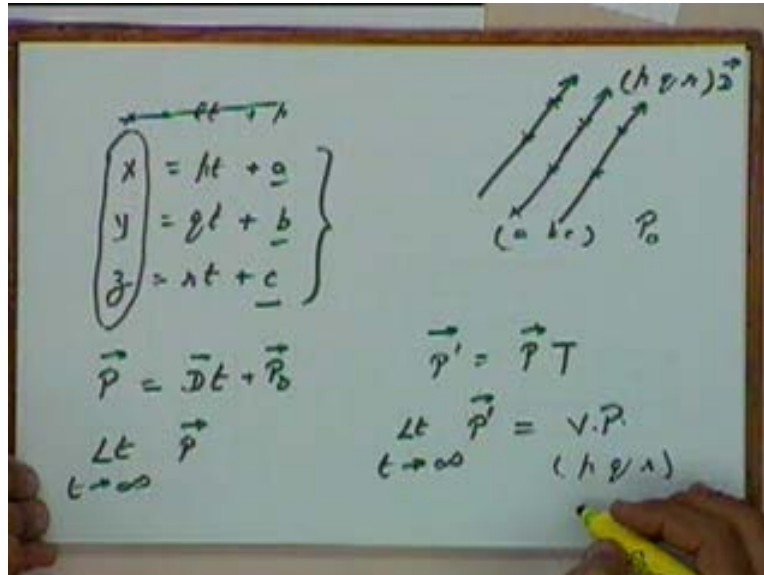 x = pt + a
y = qt + b
z = rt + c
P⃗ = D⃗t + P⃗₀
Lt P⃗
t→∞
(p q r) D⃗
(a b c) P₀
P⃗' = P⃗ T
Lt P⃗' = V.P.
t→∞ (p q r)